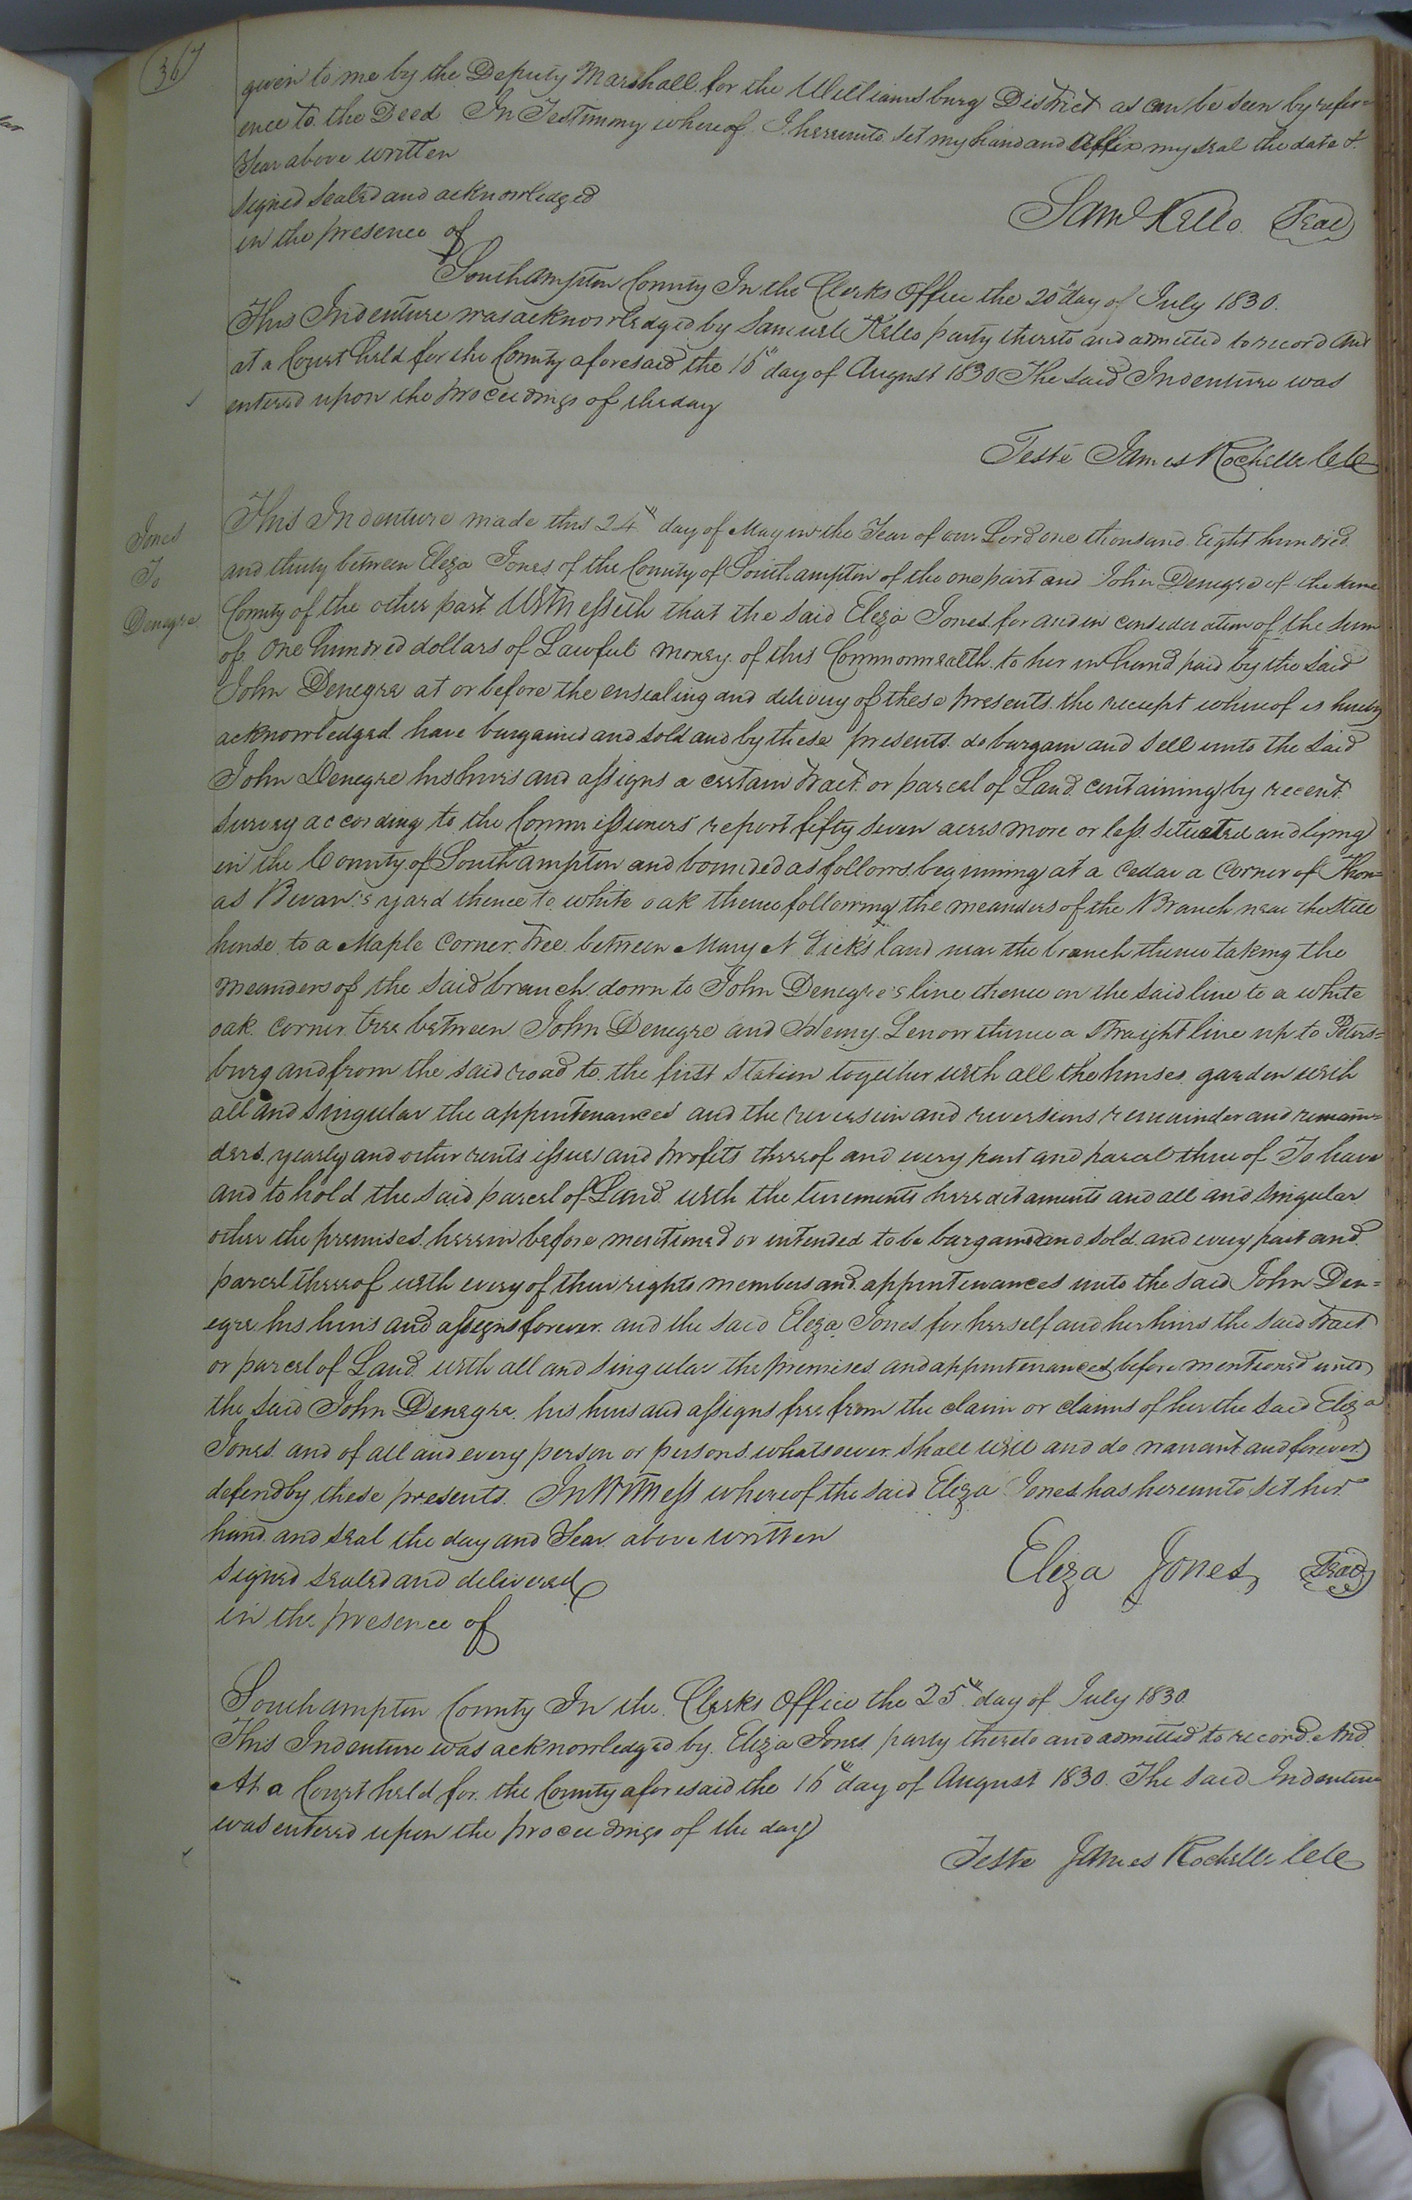 367
given to me by the Deputy Marshall for the Williamsburg District as can be seen by refer-
ence to the Deed In Testimony whereof I hereunto set my hand and affix my seal the date &
Year above written
signed sealed and acknowledged
in the presence of
Saml Kello Seal
Southampton County In the Clerks Office the 20th day of July 1830.
This Indenture was acknowledged by Samuel Kello party thereto and admitted to record And
at a Court held for the County aforesaid the 16th day of August 1830 The said Indenture was
entered upon the proceedings of the day
Teste James Rochelle ClC
Jones
To
Denegre
This Indenture made this 24th day of May in the Year of our Lord one thousand Eight hundred
and thirty between Eliza Jones of the County of Southampton of the one part and John Denegre of the same
County of the other part Witnesseth that the said Eliza Jones for and in consideration of the sum
of One hundred dollars of Lawful money of this Commonwealth to her in hand paid by the said
John Denegre at or before the ensealing and delivery of these presents the receipt whereof is hereby
acknowledged have bargained and sold and by these presents do bargain and sell unto the said
John Denegre his heirs and assigns a certain tract or parcel of Land containing by recent
survey according to the Commissioners report fifty seven acres more or less situated and lying
in the County of Southampton and bounded as follows beginning at a cedar a corner of Thom=
as Bevan's yard thence to white oak thence following the meanders of the Branch near the Still
house to a Maple corner tree between Mary N land near the branch thence taking the
meanders of the said branch down to John Denegre's line thence on the said line to a white
oak corner tree between John Denegre and Henry Lenow thence a straight line up to Peters=
burg and from the said road to the first station together with all the houses garden with
all and singular the appurtenances and the reversion and reversions remainder and remain=
ders yearly and other rents issues and profits thereof and every part and parcel thereof To have
and to hold the said parcel of Land with the tenements hereditaments and all and singular
other the premises herein before mentioned or intended to be bargained and sold and every part and
parcel thereof with every of their rights members and appurtenances unto the said John Den=
egre his heirs and assigns forever and the said Eliza Jones for herself and her heirs the said tract
or parcel of Land with all and singular the premises and appurtenances before mentioned unto
the said John Denegre his heirs and assigns free from the claim or claims of her the said Eliza
Jones and of all and every person or persons whatsoever shall will and do warrant and forever
defend by these presents. In Witness whereof the said Eliza Jones has hereunto set her
hand and seal the day and Year above written
signed sealed and delivered
in the presence of
Eliza Jones Seal
Southampton County In the Clerks Office the 25th day of July 1830.
This Indenture was acknowledged by Eliza Jones party thereto and admitted to record And
At a Court held for the County aforesaid the 16th day of August 1830. The said Indenture
was entered upon the proceedings of the day
Teste James Rochelle ClC